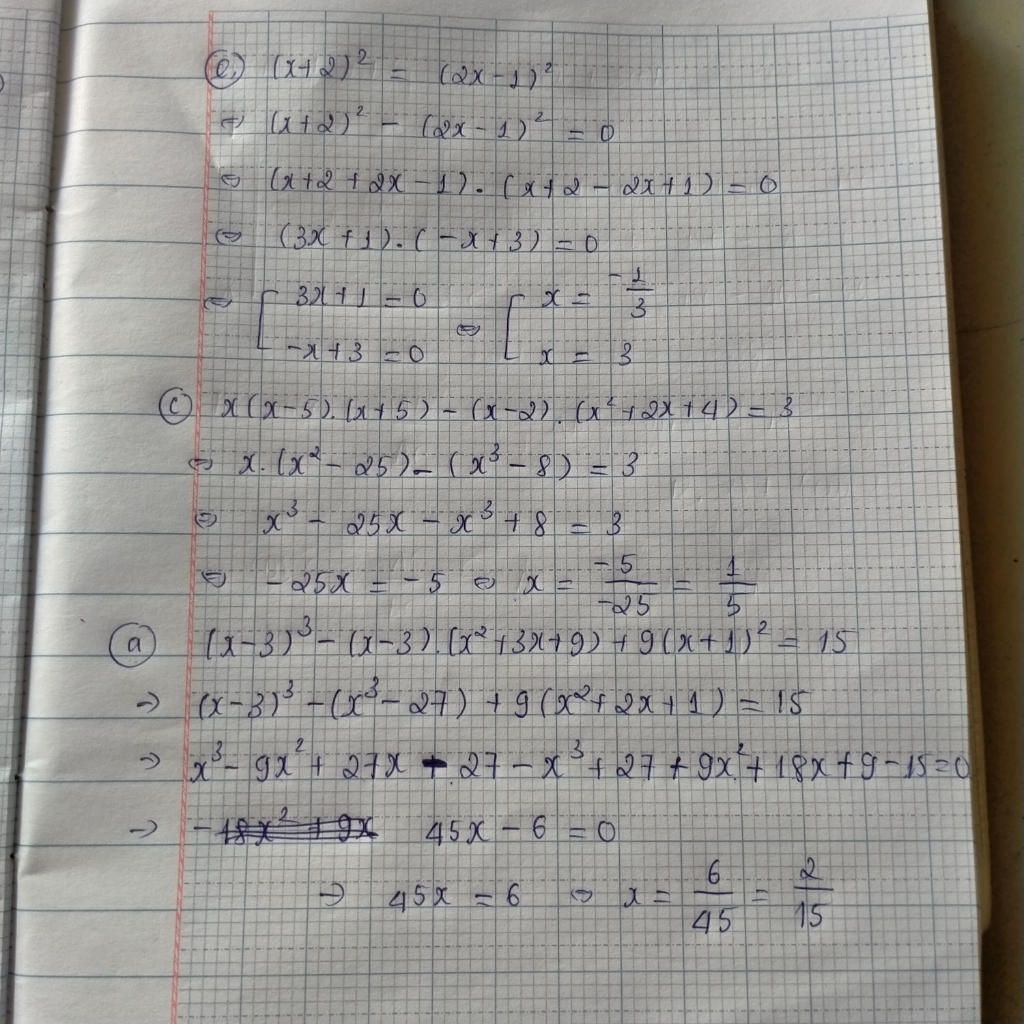 e, (x+2)² = (2x-1)²
⇔ (x+2)² - (2x-1)² = 0
⇔ (x+2+2x-1).(x+2-2x+1) = 0
⇔ (3x+1).(-x+3) = 0
⇔ [ 3x+1 = 0 ⇔ [ x = -1/3
-x+3 = 0 x = 3
c x(x-5).(x+5) - (x-2).(x²+2x+4) = 3
⇔ x.(x²-25) - (x³-8) = 3
⇔ x³ - 25x - x³ + 8 = 3
⇔ -25x = -5 ⇔ x = -5/-25 = 1/5
a (x-3)³ - (x-3).(x²+3x+9) + 9(x+1)² = 15
→ (x-3)³ - (x³-27) + 9(x²+2x+1) = 15
→ x³ - 9x² + 27x - 27 - x³ + 27 + 9x² + 18x + 9 - 15 = 0
→ -18x² + 9x 45x - 6 = 0
→ 45x = 6 ⇔ x = 6/45 = 2/15